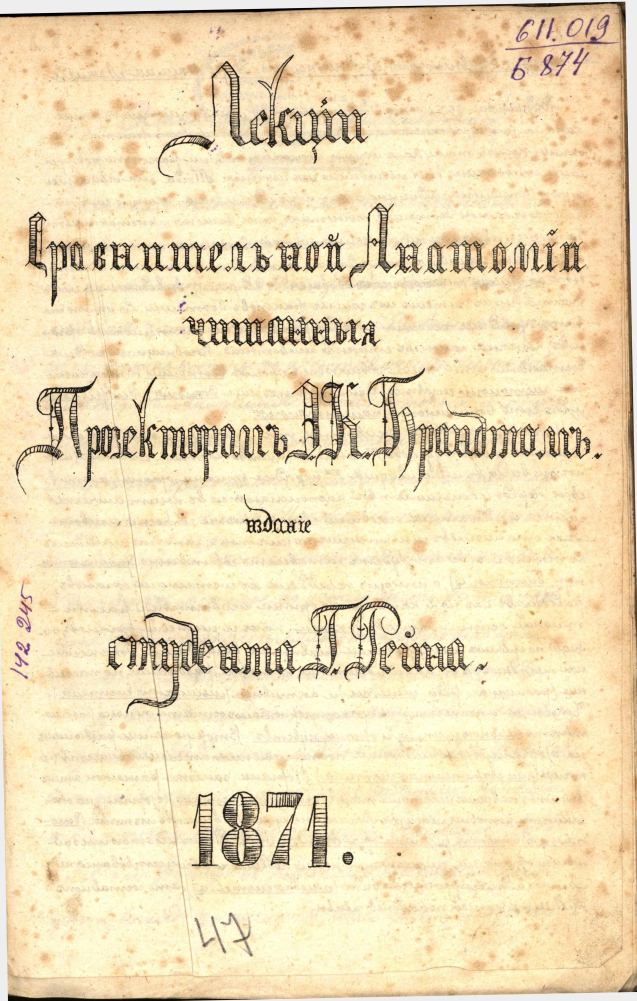 611.019
Б 874
Лекціи
Сравнительной Анатоміи
читанныя
Прозекторомъ Э.К. Брандтомъ.
изданіе
студента Г. Рейна.
142 245
1871.
47